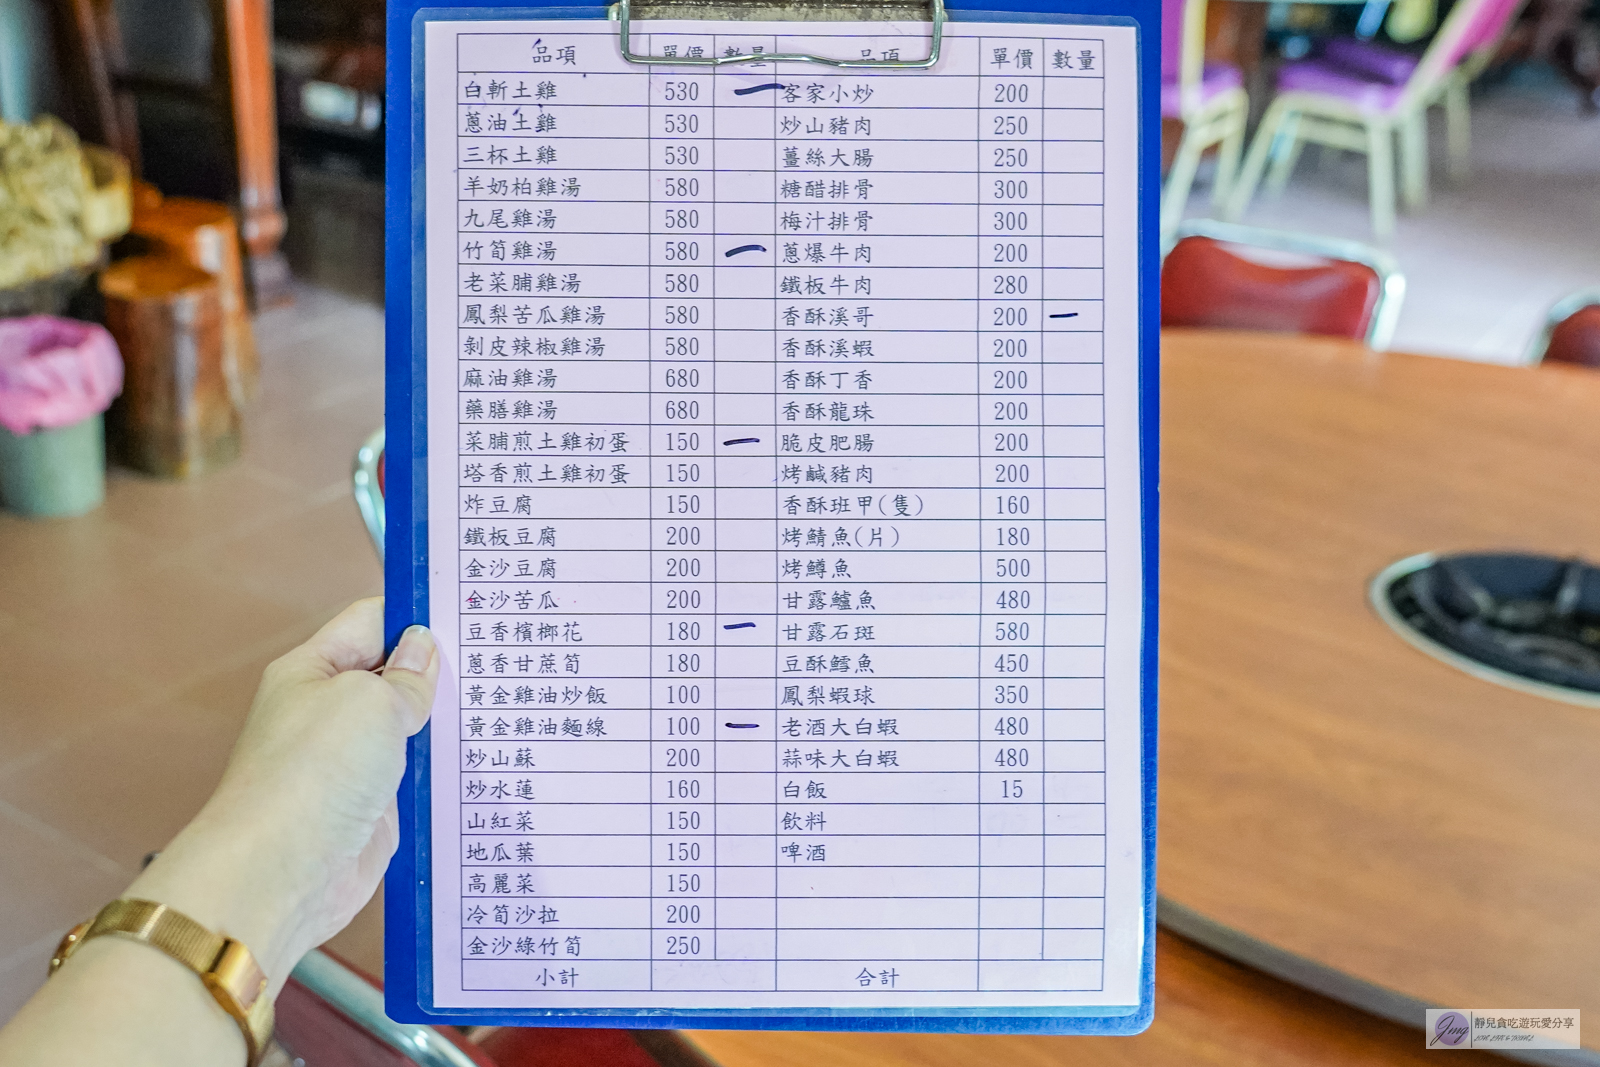 品項 單價 數量 品項 單價 數量
白斬土雞 530 一 客家小炒 200
蔥油土雞 530 炒山豬肉 250
三杯土雞 530 薑絲大腸 250
羊奶柏雞湯 580 糖醋排骨 300
九尾雞湯 580 梅汁排骨 300
竹筍雞湯 580 一 蔥爆牛肉 200
老菜脯雞湯 580 鐵板牛肉 280
鳳梨苦瓜雞湯 580 香酥溪哥 200 一
剝皮辣椒雞湯 580 香酥溪蝦 200
麻油雞湯 680 香酥丁香 200
藥膳雞湯 680 香酥龍珠 200
菜脯煎土雞初蛋 150 一 脆皮肥腸 200
塔香煎土雞初蛋 150 烤鹹豬肉 200
炸豆腐 150 香酥班甲(隻) 160
鐵板豆腐 200 烤鯖魚(片) 180
金沙豆腐 200 烤鱒魚 500
金沙苦瓜 200 甘露鱸魚 480
豆香檳榔花 180 一 甘露石斑 580
蔥香甘蔗筍 180 豆酥鱈魚 450
黃金雞油炒飯 100 鳳梨蝦球 350
黃金雞油麵線 100 一 老酒大白蝦 480
炒山蘇 200 蒜味大白蝦 480
炒水蓮 160 白飯 15
山紅菜 150 飲料
地瓜葉 150 啤酒
高麗菜 150
冷筍沙拉 200
金沙綠竹筍 250
小計 合計
Jmg 靜兒貪吃遊玩愛分享